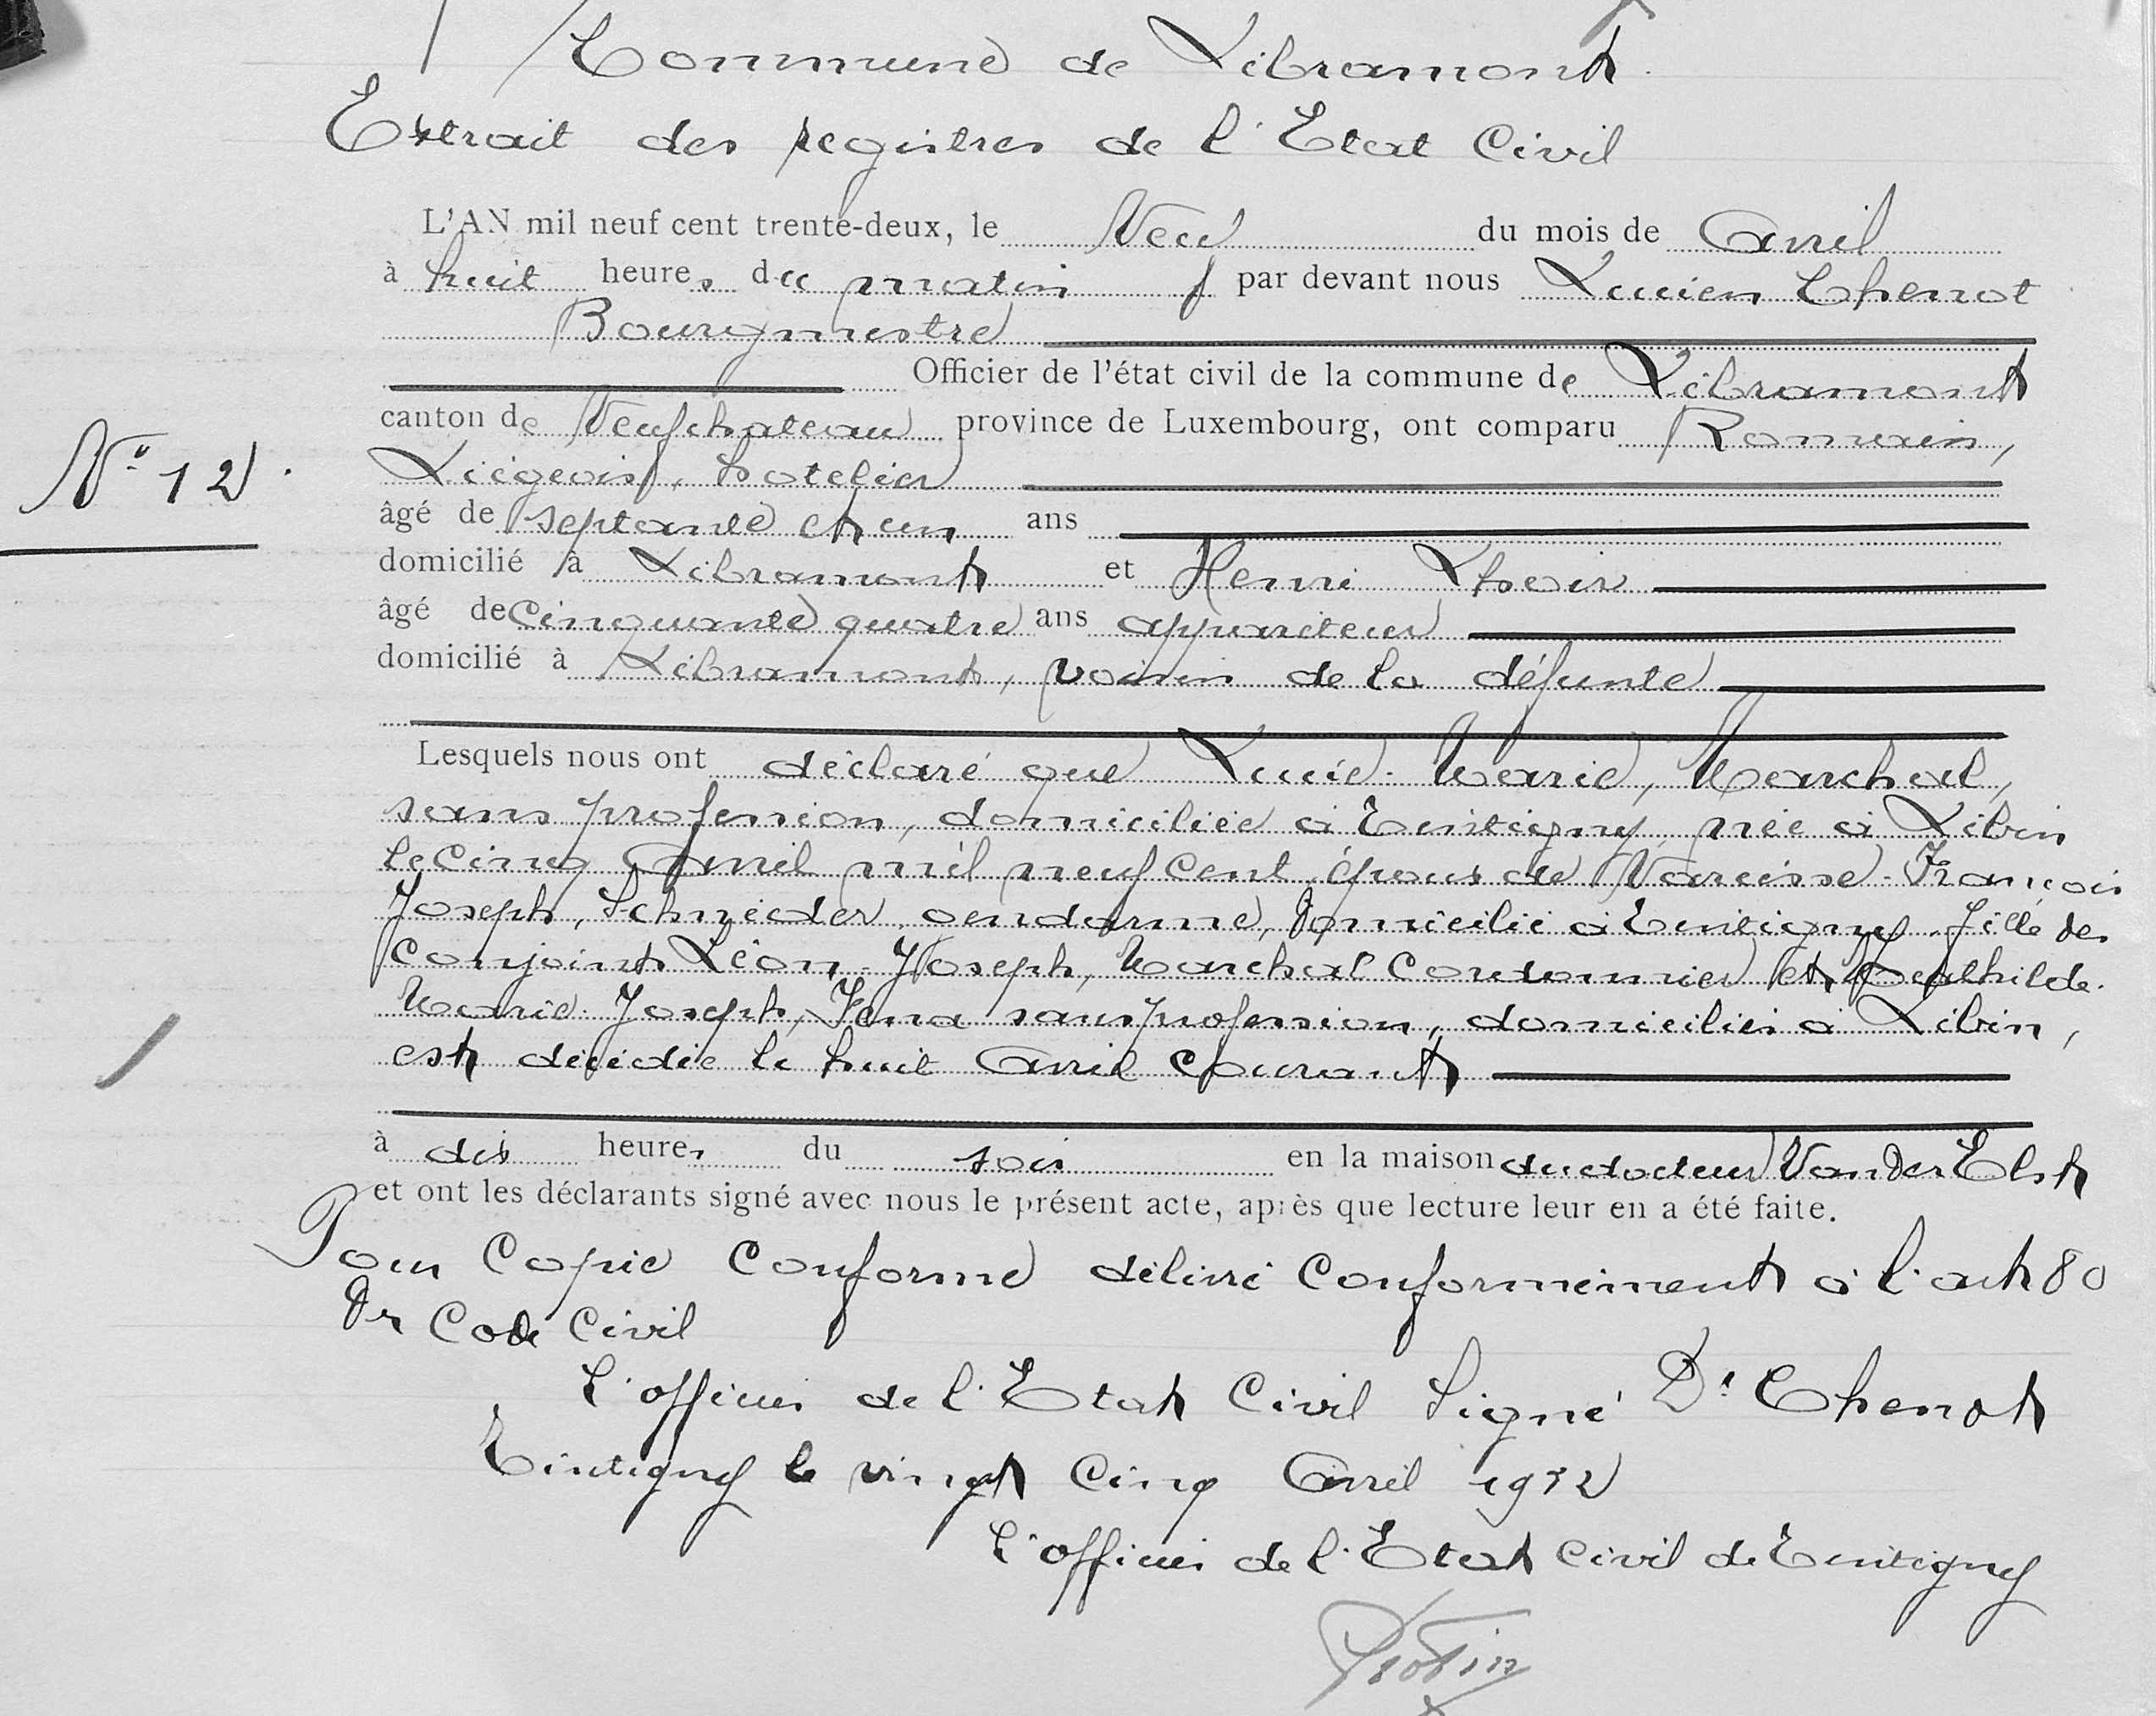 Commune de Libramont.
Extrait des registres de l'Etat Civil
L'AN mil neuf cent trente-deux, le Neuf du mois de Avril
à huit heures du matin par devant nous Lucien Chenot
Bourgmestre
Officier de l'état civil de la commune de Libramont
canton de Neufchateau province de Luxembourg, ont comparu Romain,
Nº 12.
Liégeois, hotelier
âgé de septante et un ans
domicilié à Libramont et Henri
âgé de cinquante quatre ans appariteur
domicilié à Libramont, voisin de la défunte
Lesquels nous ont déclaré que Lucie-Marie, Marchal,
sans profession, domiciliée à Tintigny, née à Libin
le Cinq Avril mil neuf cent, épouse de Narcisse-François
Joseph, Schneider, gendarme, domicilié à Tintigny, fille des
conjoints Léon-Joseph, Marchal Cordonnier et
Marie-Joseph, sans profession, domiciliés à Libin,
est décédée le huit Avril Courant
à dix heures du soir en la maison du docteur Van Der Elst
et ont les déclarants signé avec nous le présent acte, après que lecture leur en a été faite.
Pour Copie Conforme délivré Conformément à l'art 80
du Code Civil
L'officier de l'Etat Civil Signé Dr Chenot
Tintigny le vingt cinq Avril 1932
L'officier de l'Etat Civil de Tintigny